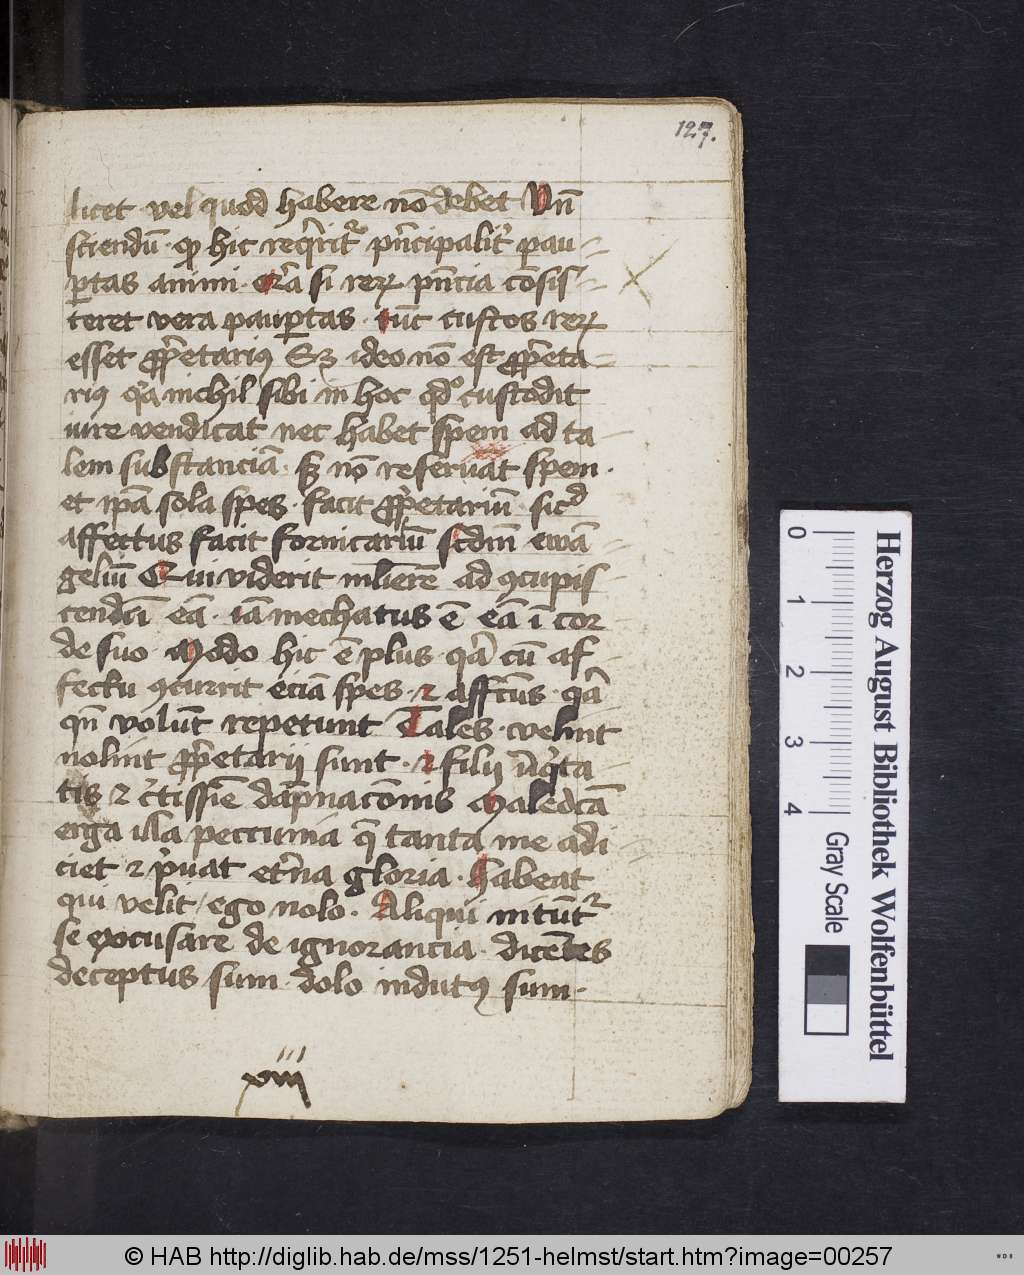 127.
licet vel quod habere nō debet Vn̄
sciendū ꝙ hic reqͥritᷣ pͥncipalitᷣ pau
ꝑtas animi Qr̄a si reꝝ pn̄cia cōsis
teret vera pauꝑtas tūc custos reꝝ
esset ꝓpͥetariꝰ Sꝫ ideo nō est ꝓpͥeta
riꝰ qͥa nichil sibi in hoc qd̓ custodit
iure vendicat nec habet spem ad ta
lem substanciā sꝫ nō reseruat spem
et ip̄a sola spes facit ꝓpͥetariū sic
affectus facit fornicariū scd̄m ewā
geliū Qui viderit ml̄ierē ad ꝯcupis
cendū eā iā mechatus ē eā ī cor
de suo Modo hic ē plus qͣ cū af
fectu ꝯcurrit eciā spes ⁊ affc̄us qͣ
qn̄ volūt repetunt Tales velint
nolint ꝓpͥetarij sunt ⁊ filij
tis ⁊ c̓tissīe dāpnacōnis Maledc̄ā
erga illa peccunia q̄ tanta me adi
ciet ⁊ pͥuat et̓na gloria Habeat
qui velit ego nolo Aliqui nitūtᷣ
se excusare de ignorancia dicētes
deceptus sum dolo indutꝰ sum
xiii
Herzog August Bibliothek Wolfenbüttel
0 1 2 3 4
Gray Scale
© HAB http://diglib.hab.de/mss/1251-helmst/start.htm?image=00257